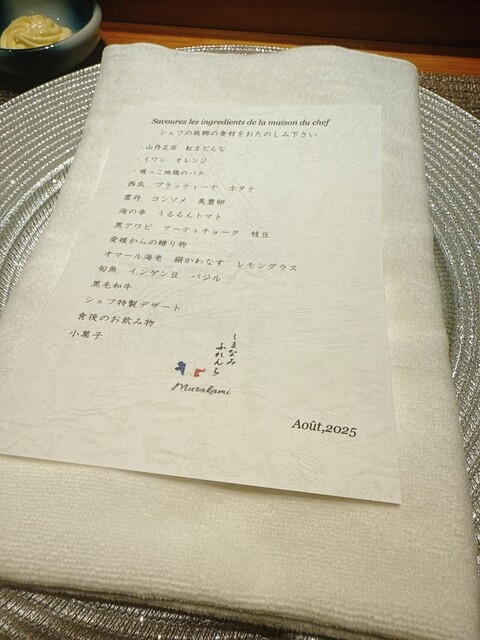 Savourez les ingredients de la maison du chef
シェフの故郷の食材をおたのしみ下さい
・山丹正宗　紅まどんな
・イワシ　オレンジ
・媛っこ地鶏のパテ
西瓜　ブラッティーナ　ホタテ
雲丹　コンソメ　美豊卵
海の幸　うるるんトマト
黒アワビ　アーティチョーク　枝豆
愛媛からの贈り物
オマール海老　絹かわなす　レモングラス
旬魚　インゲン豆　バジル
黒毛和牛
シェフ特製デザート
食後のお飲み物
小菓子
しまなみ
ふれんち
Murakami
Août,2025